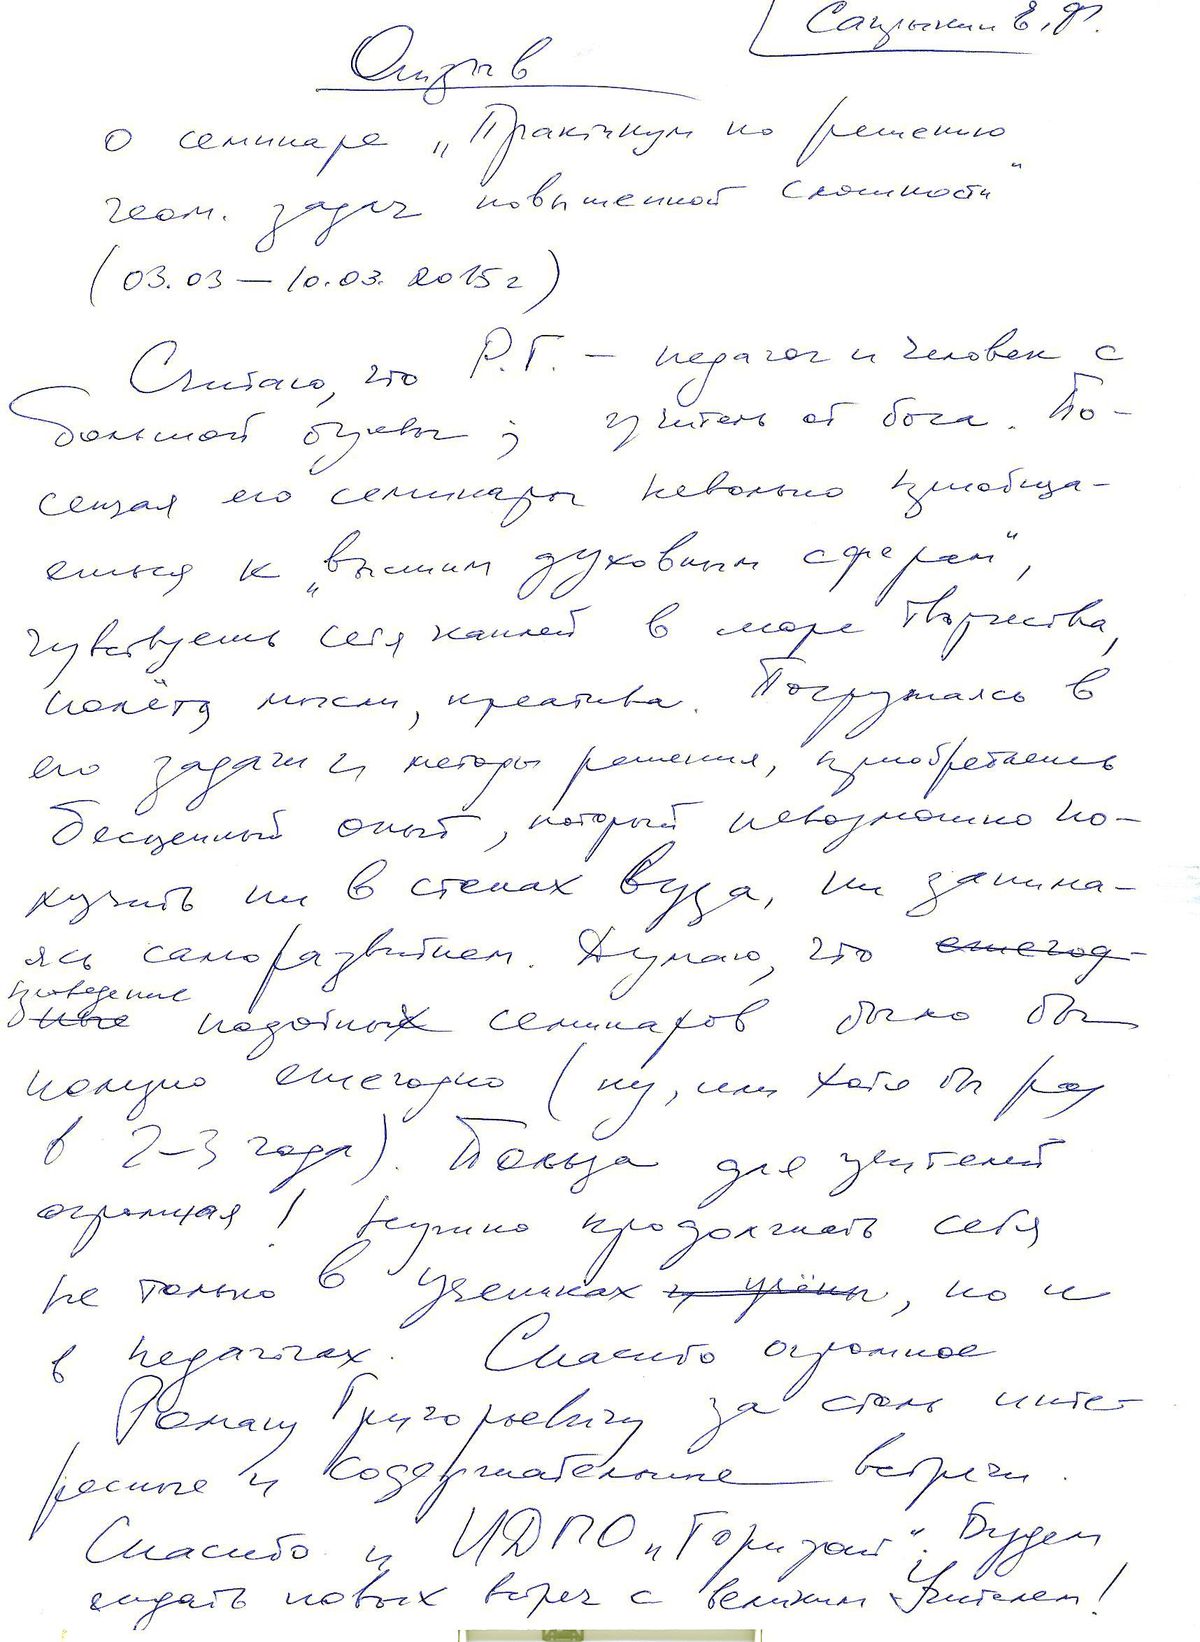 Сацункин Е.Ф.
Отзыв
о семинаре „Практикум по решению
геом. задач повышенной сложности"
(03.03 — 10.03. 2015г)
Считаю, что Р.Г. – педагог и человек с
большой буквы ; учитель от бога. По-
сещая его семинары невольно приобща-
ешься к „высшим духовным сферам",
чувствуешь себя каплей в море творчества,
полёта мысли, креатива. Погружаясь в
его задачи и методы решения, приобретаешь
бесценный опыт, который невозможно по-
лучить ни в стенах вуза, ни занима-
ясь саморазвитием. Думаю, что ежегод-
проведение
ные подобных семинаров было бы
полезно ежегодно (ну, или хотя бы раз
в 2–3 года). Польза для учителей
огромная! Нужно продолжать себя
не только в учениках и учёны, но и
в педагогах. Спасибо огромное
Роману Григорьевичу за столь инте-
ресные и содержательные встречи.
Спасибо и ЦДПО „Горизонт". Будем
ждать новых встреч с великим Учителем!